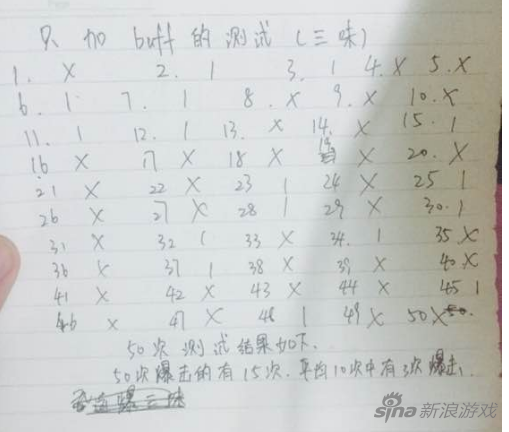 只加buff的测试(三味)
1. X 2. 1 3. 1 4. X 5. X
6. 1 7. 1 8. X 9. X 10. X
11. 1 12. 1 13. X 14. X 15. 1
16 X 17 X 18 X 19 X 20. X
21 X 22 X 23 1 24 X 25 1
26 X 27 X 28 1 29 X 30. 1
31 X 32 1 33 X 34. 1 35 X
36 X 37 1 38 X 39 X 40 X
41 X 42 X 43 X 44 X 45 1
46 X 47 X 48 1 49 X 50 X
50次测试结果如下.
50次爆击的有15次.平均10次中有3次爆击.
sina新浪游戏